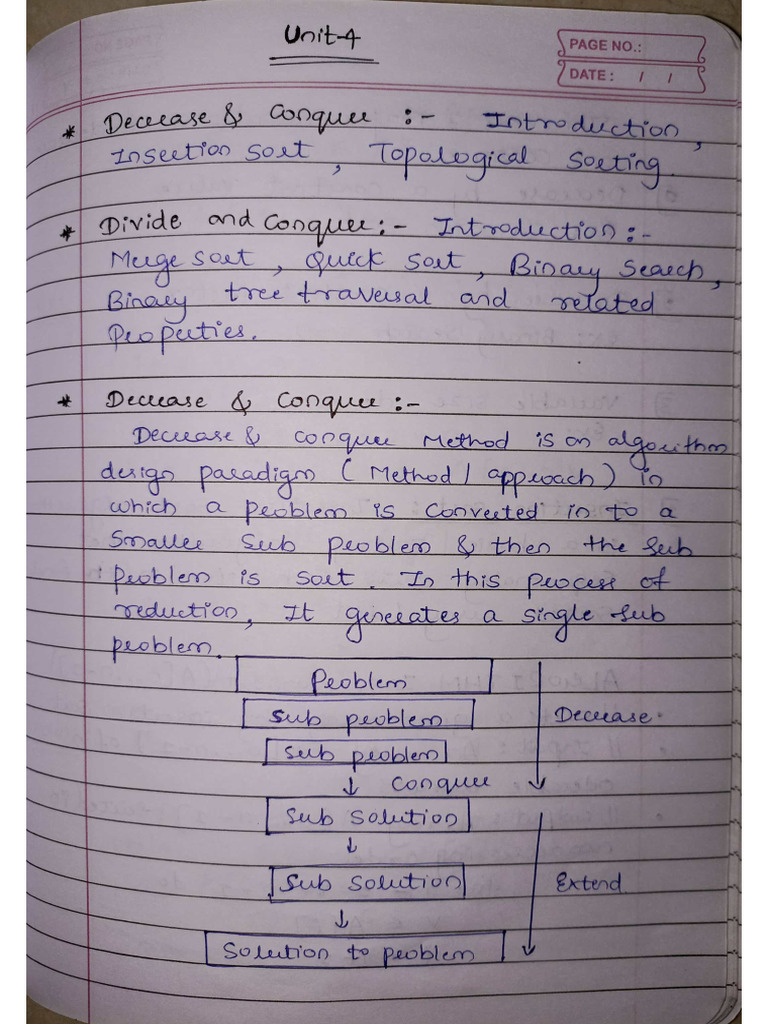 Unit-4
PAGE NO.:
DATE: / /
* Decrease & Conquer :- Introduction,
Insertion Sort, Topological Sorting.
* Divide and Conquer:- Introduction:-
Merge Sort, Quick Sort, Binary Search,
Binary tree traversal and related
Properties.
* Decrease & Conquer :-
Decrease & Conquer Method is an algorithm
design paradigm (Method / approach) in
which a problem is converted in to a
Smaller Sub problem & then the Sub
Problem is Sort. In this process of
reduction, It generates a single Sub
problem.
Problem
Sub problem
Decrease.
Sub problem
↓ Conquer
Sub Solution
↓
Sub Solution
Extend
↓
Solution to problem